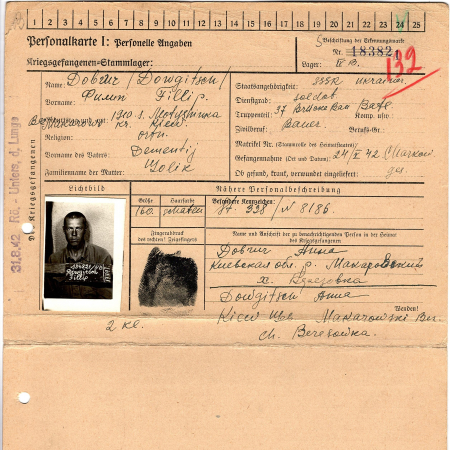 1 2 3 4 5 6 7 8 9 10 11 12 13 14 15 16 17 18 19 20 21 22 23 24 25
Personalkarte I: Personelle Angaben
Beschriftung der Erkennungsmarke
Nr. 18382
Kriegsgefangenen-Stammlager:
Lager:
132
Name: Довгич /Dowgitsch/
Staatsangehörigkeit: SSSR Ukrainer
Vorname: Филип Fillip.
Dienstgrad: soldat
Truppenteil: 37 Brücke Bau Batl. Komp. usw.
1910
Kiew
Zivilberuf: Bauer Berufs-Gr.:
Religion: orth.
Matrikel Nr. (Stammrolle des Heimatstaates):
Vorname des Vaters: Dementij
Gefangennahme (Ort und Datum): 24/V 42 Charkow
Familienname der Mutter: Golik
Ob gesund, krank, verwundet eingeliefert:
Des Kriegsgefangenen
31.8.42
Lichtbild
Nähere Personalbeschreibung
Größe
Haarfarbe
Besondere Kennzeichen:
160.
338 / N 8186.
Fingerabdruck
des rechten! Zeigefingers
Name und Anschrift der zu benachrichtigenden Person in der Heimat
des Kriegsgefangenen
Довгич Анна
Киевская обл. р. Макаровский
х. Березовка
Dowgitsch Anna
Wenden!
Kiew Makarowski
ch. Beresowka
Dowgitsch
Fillip
2 kl.